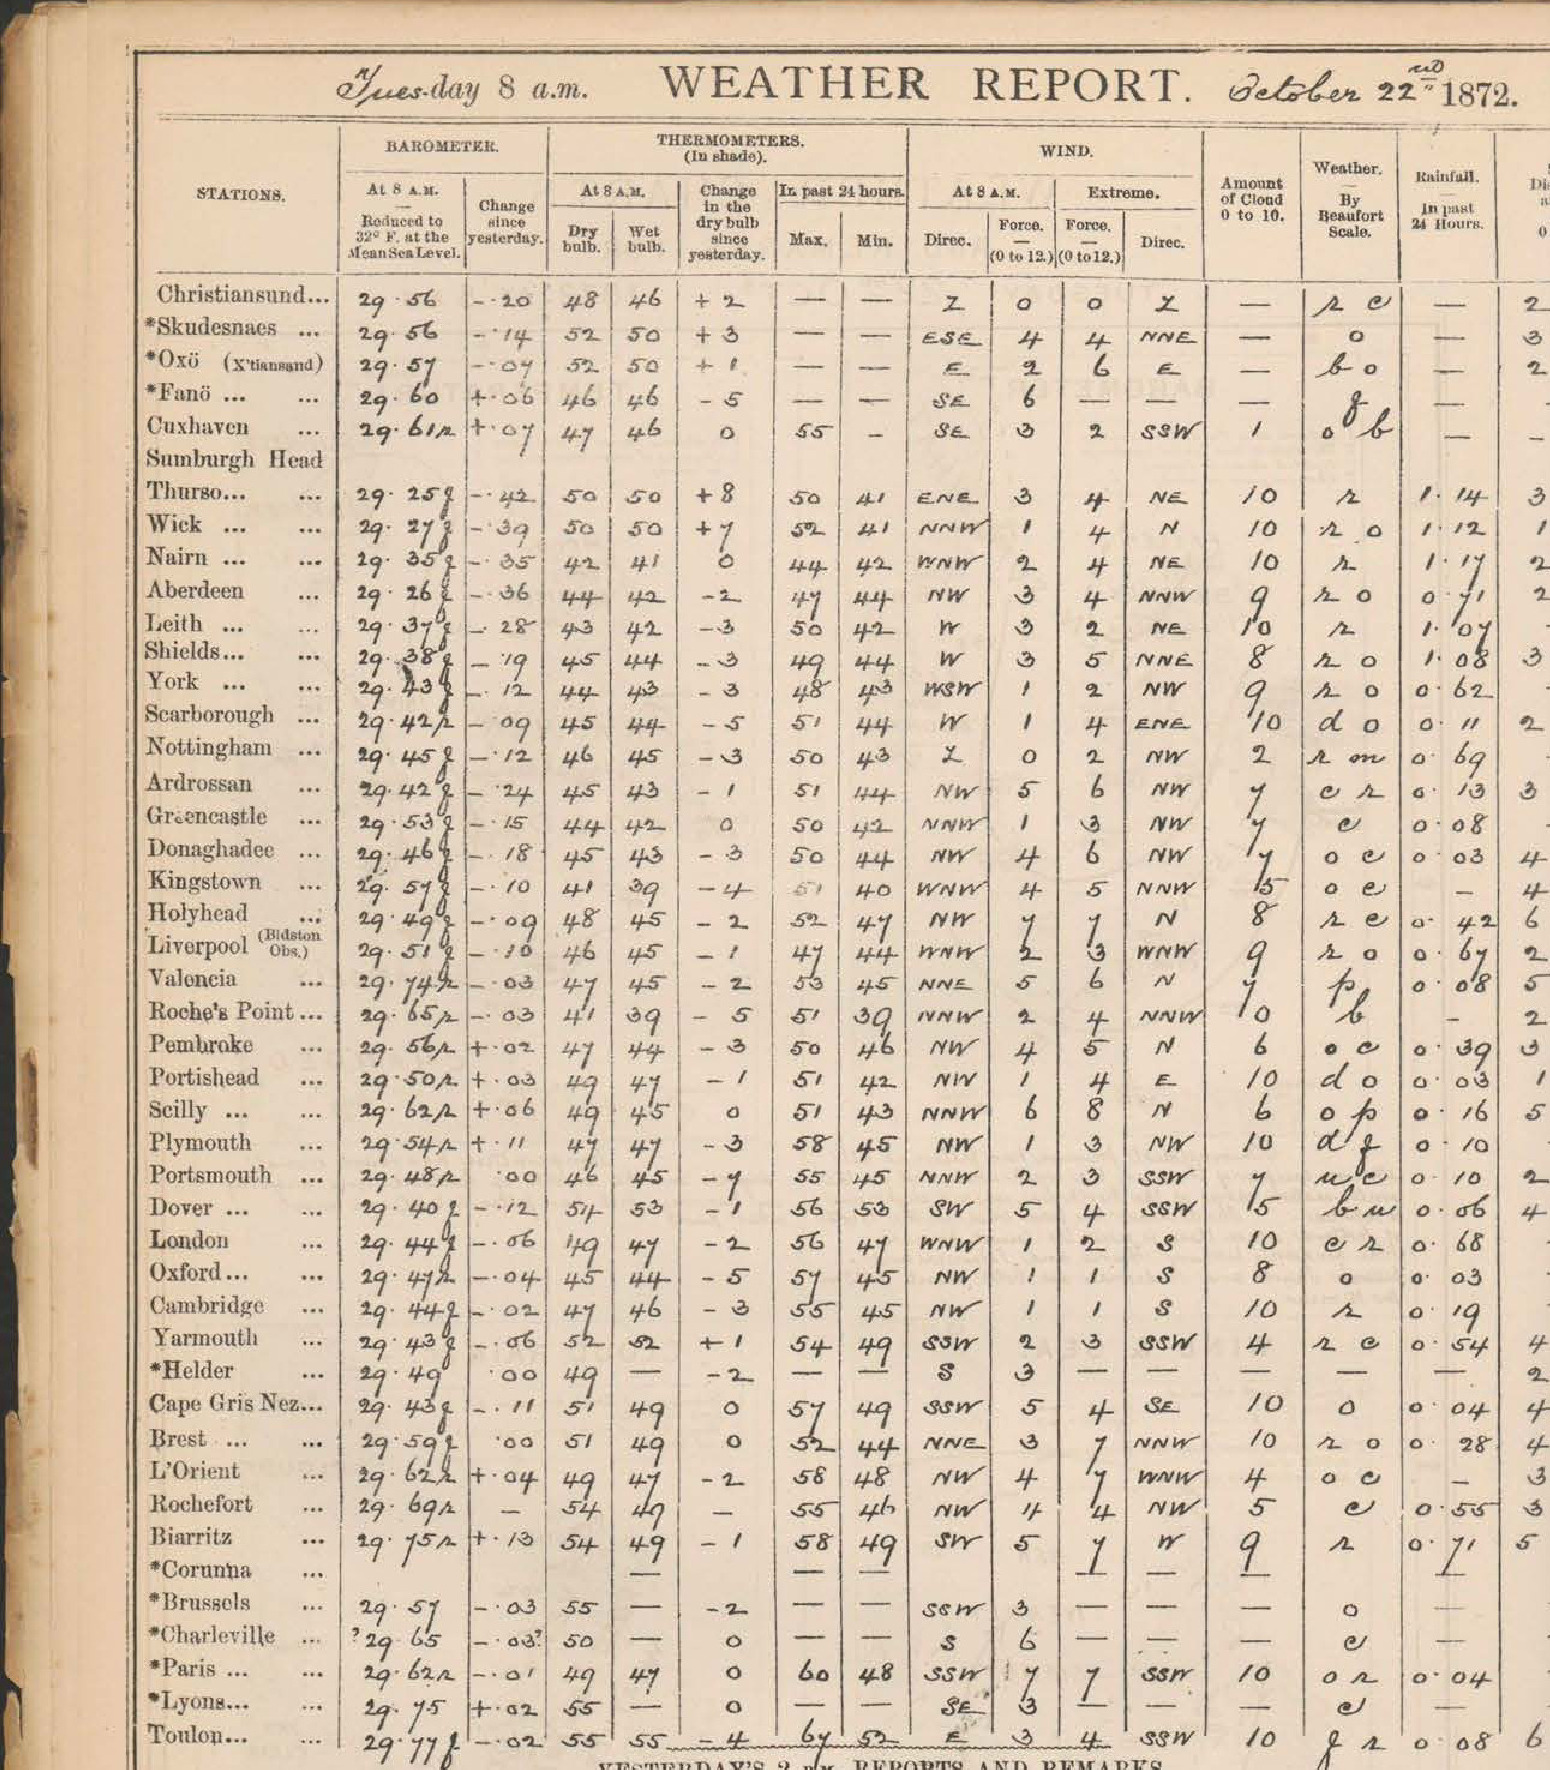 Tuesday 8 a.m. WEATHER REPORT. October 22nd 1872.
STATIONS. BAROMETER. THERMOMETERS. (In shade). WIND. Amount of Cloud 0 to 10. Weather. — By Beaufort Scale. Rainfall. — In past 24 Hours.
At 8 A.M. — Reduced to 32° F. at the Mean Sea Level. Change since yesterday. At 8 A.M. Dry bulb. Wet bulb. Change in the dry bulb since yesterday. In past 24 hours. Max. Min. At 8 A.M. Direc. Force. — (0 to 12.) Extreme. Force. — (0 to 12.) Direc.
Christiansund... 29.56 -.20 48 46 +2 — — Z 0 0 Z — r c — 2
*Skudesnaes ... 29.56 -.14 52 50 +3 — — ESE 4 4 NNE — o — 3
*Oxö (X'tiansand) 29.57 -.07 52 50 +1 — — E 2 6 E — b o — 2
*Fanö ... ... 29.60 +.06 46 46 -5 — — SE 6 — — — f —
Cuxhaven ... 29.61r +.07 47 46 0 55 - SE 3 2 SSW 1 o b — -
Sumburgh Head
Thurso... ... 29.25f -.42 50 50 +8 50 41 ENE 3 4 NE 10 r 1.14 3
Wick ... ... 29.27f -.39 50 50 +7 52 41 NNW 1 4 N 10 r o 1.12 1
Nairn ... ... 29.35f -.35 42 41 0 44 42 WNW 2 4 NE 10 r 1.17 2
Aberdeen ... 29.26f -.36 44 42 -2 47 44 NW 3 4 NNW 9 r o 0.71 2
Leith ... ... 29.37f -.28 43 42 -3 50 42 W 3 2 NE 10 r 1.07
Shields... ... 29.38f -.19 45 44 -3 49 44 W 3 5 NNE 8 r o 1.08 3
York ... ... 29.43f -.12 44 43 -3 48 43 WSW 1 2 NW 9 r o 0.62
Scarborough ... 29.42r -.09 45 44 -5 51 44 W 1 4 ENE 10 d o 0.11 2
Nottingham ... 29.45f -.12 46 45 -3 50 43 Z 0 2 NW 2 r m 0.69
Ardrossan ... 29.42f -.24 45 43 -1 51 44 NW 5 6 NW 7 c r 0.13 3
Greencastle ... 29.53f -.15 44 42 0 50 42 NNW 1 3 NW 7 c 0.08
Donaghadee ... 29.46f -.18 45 43 -3 50 44 NW 4 6 NW 7 o c 0.03 4
Kingstown ... 29.57f -.10 41 39 -4 51 40 WNW 4 5 NNW 5 o c - 4
Holyhead ... 29.49f -.09 48 45 -2 52 47 NW 7 7 N 8 r c 0.42 6
Liverpool (Bidston Obs.) 29.51f -.10 46 45 -1 47 44 WNW 2 3 WNW 9 r o 0.67 2
Valencia ... 29.74r -.03 47 45 -2 53 45 NNE 5 6 N 7 p 0.08 5
Roche's Point... 29.65r -.03 41 39 -5 51 39 NNW 2 4 NNW 10 b - 2
Pembroke ... 29.56r +.02 47 44 -3 50 46 NW 4 5 N 6 o c 0.39 3
Portishead ... 29.50r +.03 49 47 -1 51 42 NW 1 4 E 10 d o 0.03 1
Scilly ... ... 29.62r +.06 49 45 0 51 43 NNW 6 8 N 6 o p 0.16 5
Plymouth ... 29.54r +.11 47 47 -3 58 45 NW 1 3 NW 10 d f 0.10
Portsmouth ... 29.48r .00 46 45 -7 55 45 NNW 2 3 SSW 7 u c 0.10 2
Dover ... ... 29.40f -.12 54 53 -1 56 53 SW 5 4 SSW 5 b u 0.06 4
London ... 29.44f -.06 49 47 -2 56 47 WNW 1 2 S 10 c r 0.68
Oxford... ... 29.47r -.04 45 44 -5 57 45 NW 1 1 S 8 o 0.03
Cambridge ... 29.44f -.02 47 46 -3 55 45 NW 1 1 S 10 r 0.19
Yarmouth ... 29.43f -.06 52 52 +1 54 49 SSW 2 3 SSW 4 r c 0.54 4
*Helder ... 29.49 .00 49 — -2 — — S 3 — — — — — 2
Cape Gris Nez... 29.43f -.11 51 49 0 57 49 SSW 5 4 SE 10 o 0.04 4
Brest ... ... 29.59f .00 51 49 0 52 44 NNE 3 7 NNW 10 r o 0.28 4
L'Orient ... 29.62r +.04 49 47 -2 58 48 NW 4 7 WNW 4 o c - 3
Rochefort ... 29.69r - 54 49 - 55 46 NW 4 4 NW 5 c 0.55 3
Biarritz ... 29.75r +.13 54 49 -1 58 49 SW 5 7 W 9 r 0.71 5
*Corunna ... — — — — — — —
*Brussels ... 29.57 -.03 55 — -2 — — SSW 3 — — — o —
*Charleville ... ?29.65 -.03? 50 — 0 — — S 6 — — — c —
*Paris ... ... 29.62r -.01 49 47 0 60 48 SSW 7 7 SSW 10 o r 0.04
*Lyons... ... 29.75 +.02 55 — 0 — — SE 3 — — — c —
Toulon... ... 29.77f -.02 55 55 -4 67 52 E 3 4 SSW 10 f r 0.08 6
YESTERDAY'S 2 P.M. REPORTS AND REMARKS